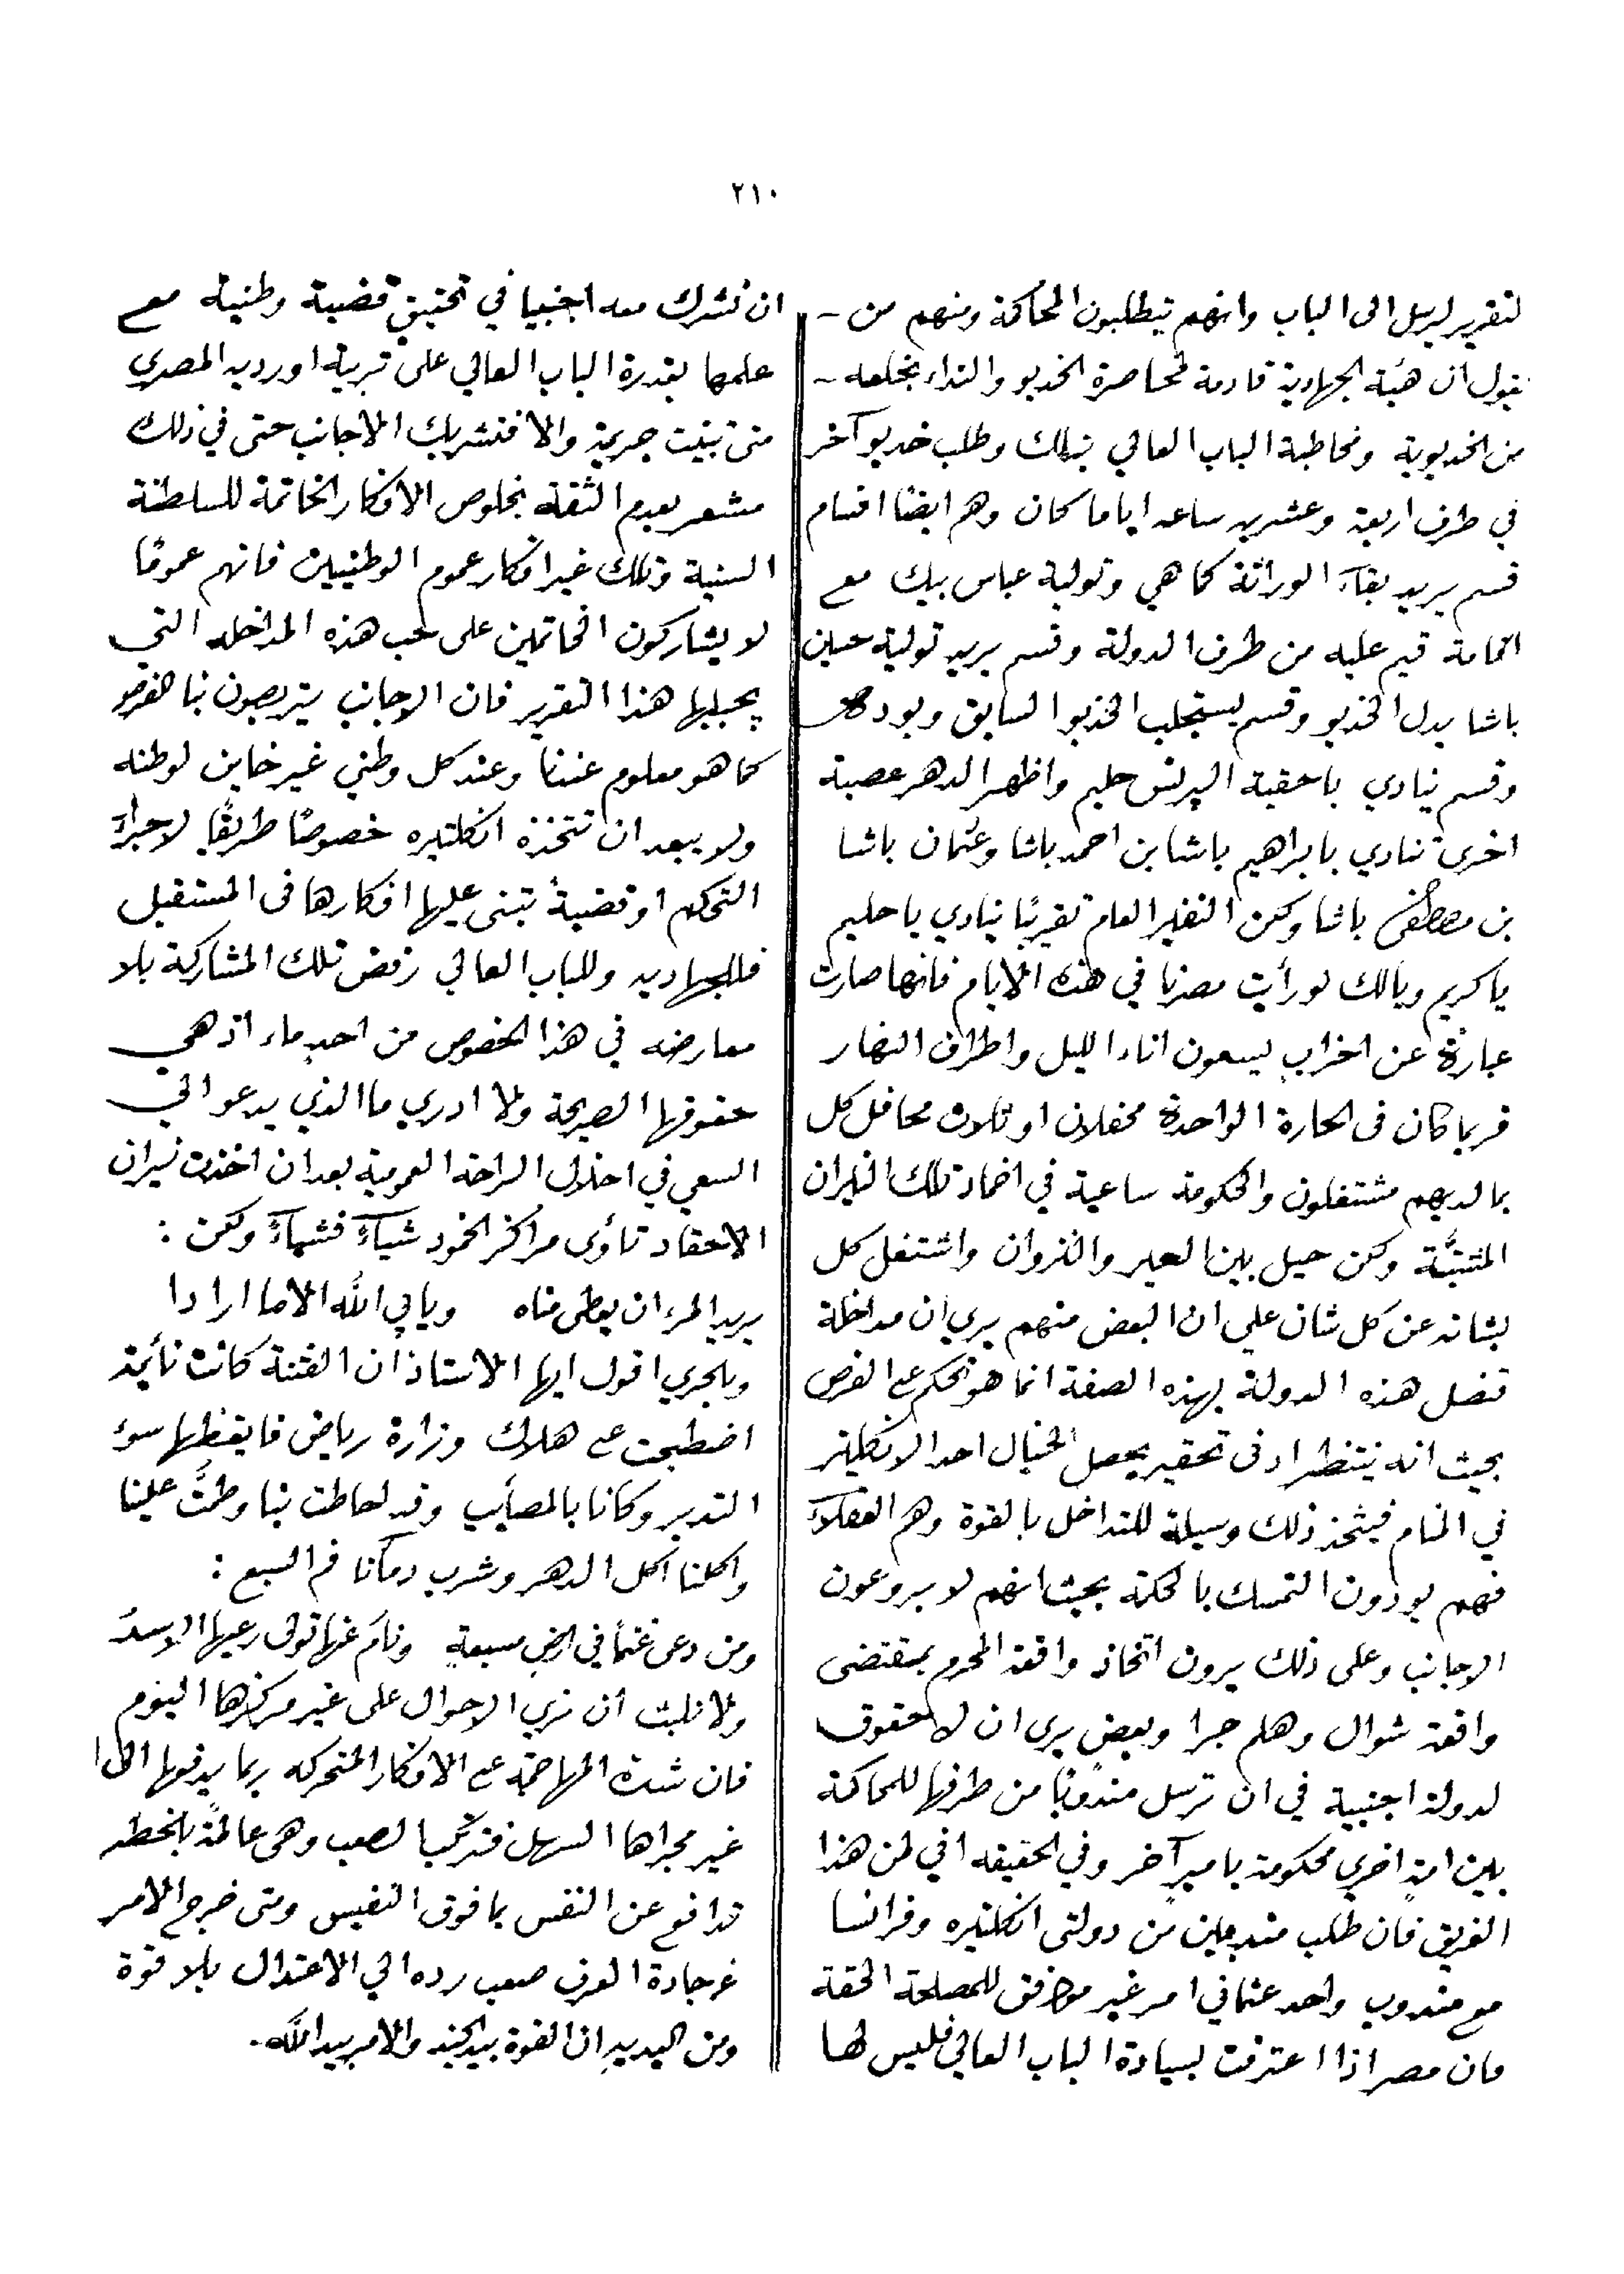 ٢١٠
لتقرير ليرسل الى الباب وانهم يتطلبون المحاكمة ومنهم من
يقول ان هيئة الجهادية قادمة لمحاصرة الخديو والنداء بخلعه
من الخديوية ومخاطبة الباب العالي بذلك وطلب خديو آخر
في ظرف اربعة وعشرين ساعه اياما كان وهم ايضًا اقسام
قسم يريد بقآء الوراثة كما هي وتولية عباس بيك مع
اقامة قيم عليه من طرف الدولة وقسم يريد تولية حسين
باشا بدل الخديو وقسم يستجلب الخديو السابق ويود
وقسم ينادي باحقية البرنس حليم واظهر الدهر عصبة
اخرى تنادي بابراهيم باشا بن احمد باشا وعثمان باشا
بن مصطفى باشا ولكن النفير العام تقريبًا ينادي يا حليم
يا كريم ويالك لو رأيت مصرنا في هذه الايام فانها صارت
عبارة عن احزاب يسعون اناء الليل واطراف النهار
فربما كان فى الحارة الواحدة محفلان او ثلاث محافل كل
بما لديهم مشتغلون والحكومة ساعية في اخماد تلك النيران
ولكن حيل بين العير والنزوان واشتغل كل
بشانه عن كل شان على ان البعض منهم يري ان مداخلة
قنصل هذه الدولة بهذه الصفة انما هو تحكم مع الغرض
بحيث انه ينتظر ادنى تحقير يحصل لخيال احد الانكليز
في المنام فيتخذ ذلك وسيلة للتداخل بالقوة وهم العقلآء
فهم يودون التمسك بالحكمة بحيث انهم لا يروعون
الاجانب وعلى ذلك يرون اتخاذ واقعة المحرم بمقتضى
واقعة شوال وهلم جرا وبعض يرى ان لا حقوق
لدولة اجنبية في ان ترسل مندوبًا من طرفها للمحاكمة
بين امةٍ اخري محكومة باميرٍ آخر وفي الحقيقه اني لمن هذا
الفريق فان طلب مندوبين من دولتى انكلتيره وفرانسا
مع مندوب واحد عثماني امر غير موافق للمصلحة الحقة
فان مصر اذا اعترفت بسيادة الباب العالي فليس لها
ان تشرك معه اجنبيا في تحقيق قضية وطنية مع
علمها بقدرة الباب العالي على تربية اورديه المصري
متى تبينت جريمة والا فتشريك الاجانب حتى في ذلك
مشعر بعدم الثقة بخلوص الافكار الخاتمة للسلطنة
السنية وتلك غير افكار عموم الوطنيين فانهم عمومًا
لا يشاركون الخاتمين على حب هذه المداخله التي
يجلبها هذا التقرير فان الاجانب يتربصون بنا الفرص
كما هو معلوم عندنا وعند كل وطني غير خاين لوطنه
ولا يبعد ان تتخذه انكلتيره خصوصًا طريقًا لاجرآء
التحكم او قضيةً تبنى عليها افكارها فى المستقبل
فللجهاديه وللباب العالي رفض تلك المشاركة بلا
معارضه في هذا الخصوص من احدٍ ماء اذ هي
حقوقها الصريحة ولا ادري ما الذي يدعو الي
السعي في اختلال الراحة العمومية بعد ان اخذت نيران
الاحقاد تأوى مراكز الخمود شيآءً فشيآءً ولكن :
يريد المرء ان يعطى مناه ويابي الله الا ما ارادا
وبالحري اقول ايها الاستاذ ان الفتنة كانت نأيمة
اضطجعت مع هلاك وزارة رياض فايقظها سوء
التدبير وكانا بالمصأيب وقد احاطت بنا وطمَّت علينا
واكلنا اكل الدهر وشرب دمآنا فم السبع :
ومن رعى غنماً في ارض مسبعةٍ ونام عنها تولى رعيها الاسدُ
ولا نلبث ان نري الاحوال على غير مركزها اليوم
فان شدة المهاجمة مع الافكار المتحركه ربما يدفعها الى
غير مجراها السهل فتركب الصعب وهى عالمة بالخطر
تدافع عن النفس بما فوق النفيس ومتى خرج الامر
عن جادة العرف صعب رده الي الاعتدال بلا قوة
ومن البديهِ ان القوة بيد الجند والامر بيد الله.